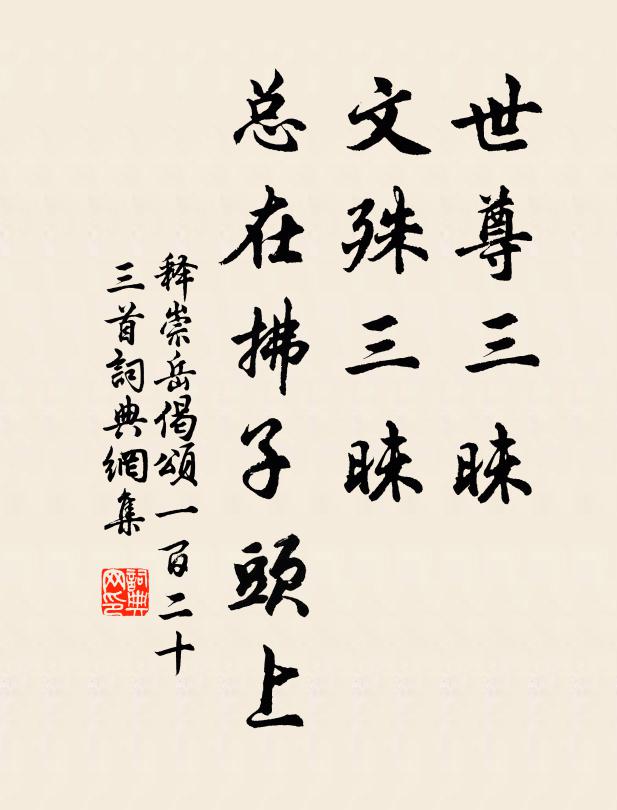 世尊三昧
文殊三昧
总在拂子頭上
释崇岳偈頌一百二十
三首詞典網集
詞典
网印